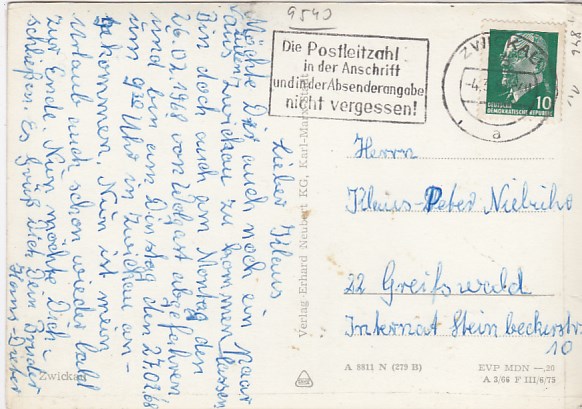 9540
Die Postleitzahl
in der Anschrift
und in der Absenderangabe
nicht vergessen!
ZWICKAU
a
10
DEUTSCHE
DEMOKRATISCHE REPUBLIK
Herrn
Klaus-Peter
22 Greifswald
Internat Steinbeckerstr
10
Verlag Erhard Neubert KG, Karl-Marx-Stadt
A 8811 N (279 B)
EVP MDN —,20
A 3/66 F III/6/75
Zwickau
Lieber Klaus
Möchte Dir auch noch ein Paar
aus Zwickau zu kommen lassen
Bin doch auch am Montag den
26.02.1968 von Wolgast abgefahren
und bin am Dinstag den 27.02.68
um Uhr in Zwickau an-
gekommen. Nun ist mein
Urlaub auch schon wieder bald
zur Ende. Nun möchte Dich
schließen. Es grüß Dich Dein Bruder
Hans-Dieter